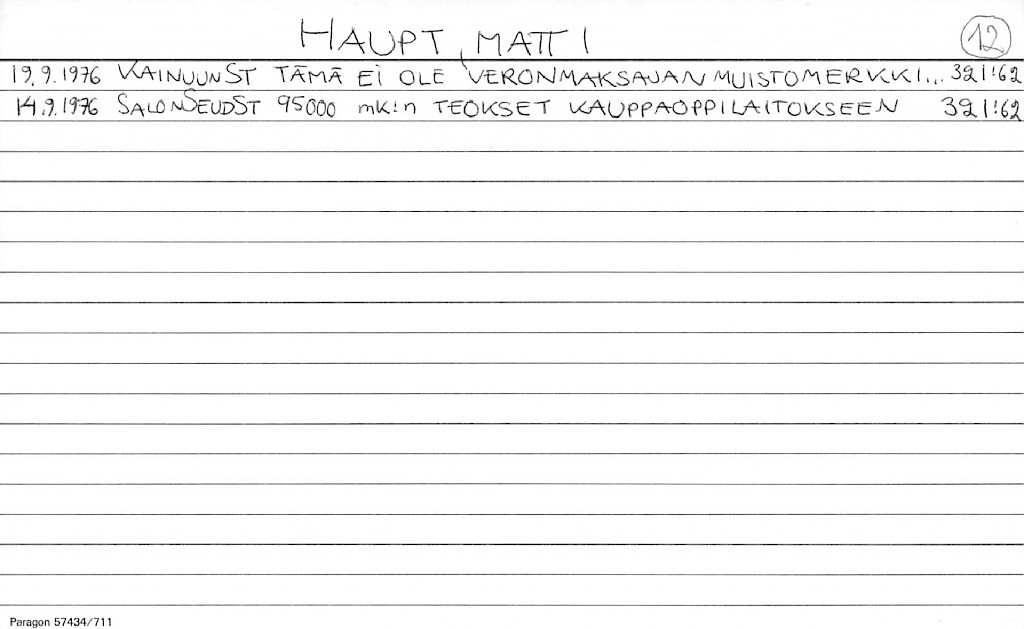 HAUPT, MATTI 12
19.9.1976 KAINUUNST TÄMÄ EI OLE VERONMAKSAJAN MUISTOMERKKI... 321:62
14.9.1976 SALONSEUDST 95000 mk:n TEOKSET KAUPPAOPPILAITOKSEEN 321:62
Paragon 57434/711